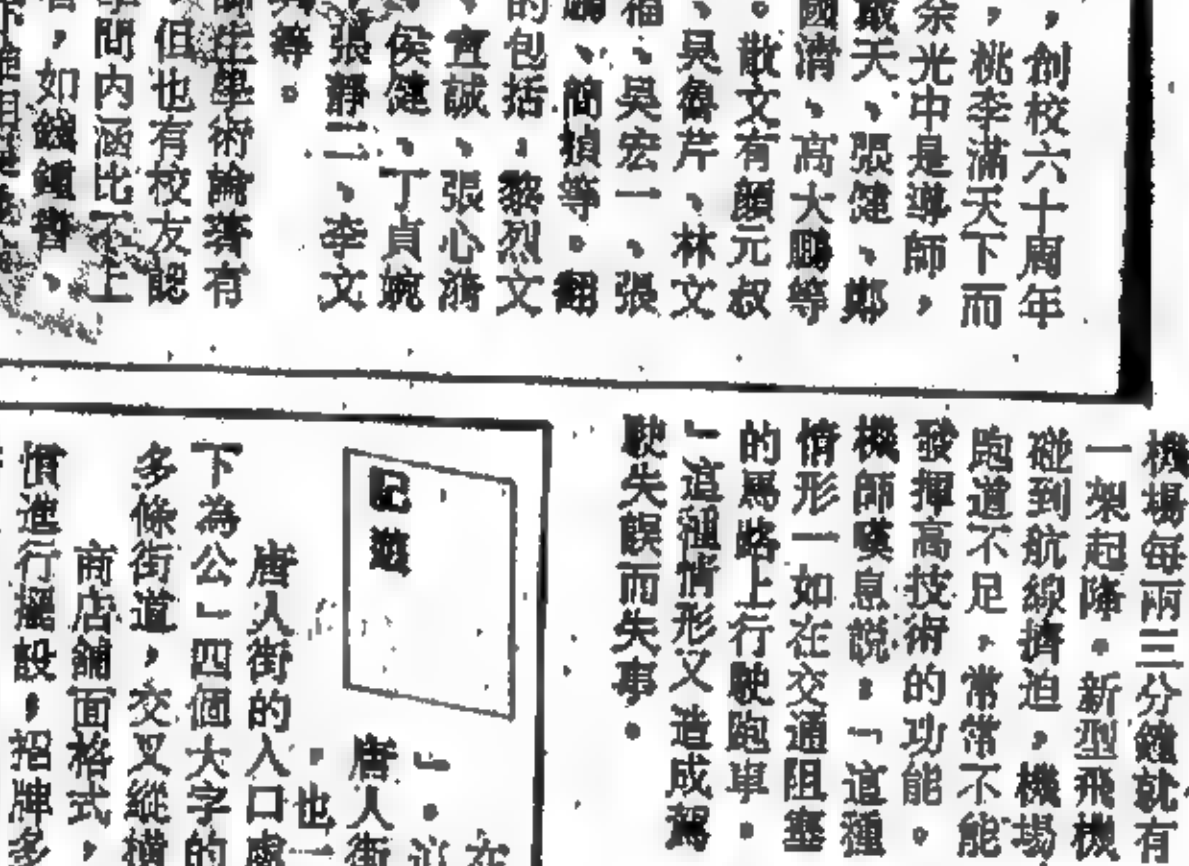 ，創校六十周年
，桃李滿天下而
余光中是導師，
戰天、張健、鄭
國清、高大鵬等
。散文有顏元叔
、吳魯芹、林文
福、吳宏一、張
、簡楨等。翻
的包括，黎烈文
、宣誠、張心漪
、侯健、丁貞婉
、張靜二、李文
等。
師生學術論著有
，但也有校友認
學問內涵比不上
者，如錢鍾書、
機場每兩三分鐘就有
一架起降。新型飛機
碰到航線擠迫，機場
跑道不足，常常不能
發揮高技術的功能。
機師嘆息說，「這種
情形一如在交通阻塞
的馬路上行駛跑車。
」這種情形又造成駕
駛失誤而失事。
記遊
在
」。
唐人街
。也一
唐人街的入口處
下為公」四個大字的
多條街道，交叉縱橫
商店舖面格式，
慣進行擺設，招牌多